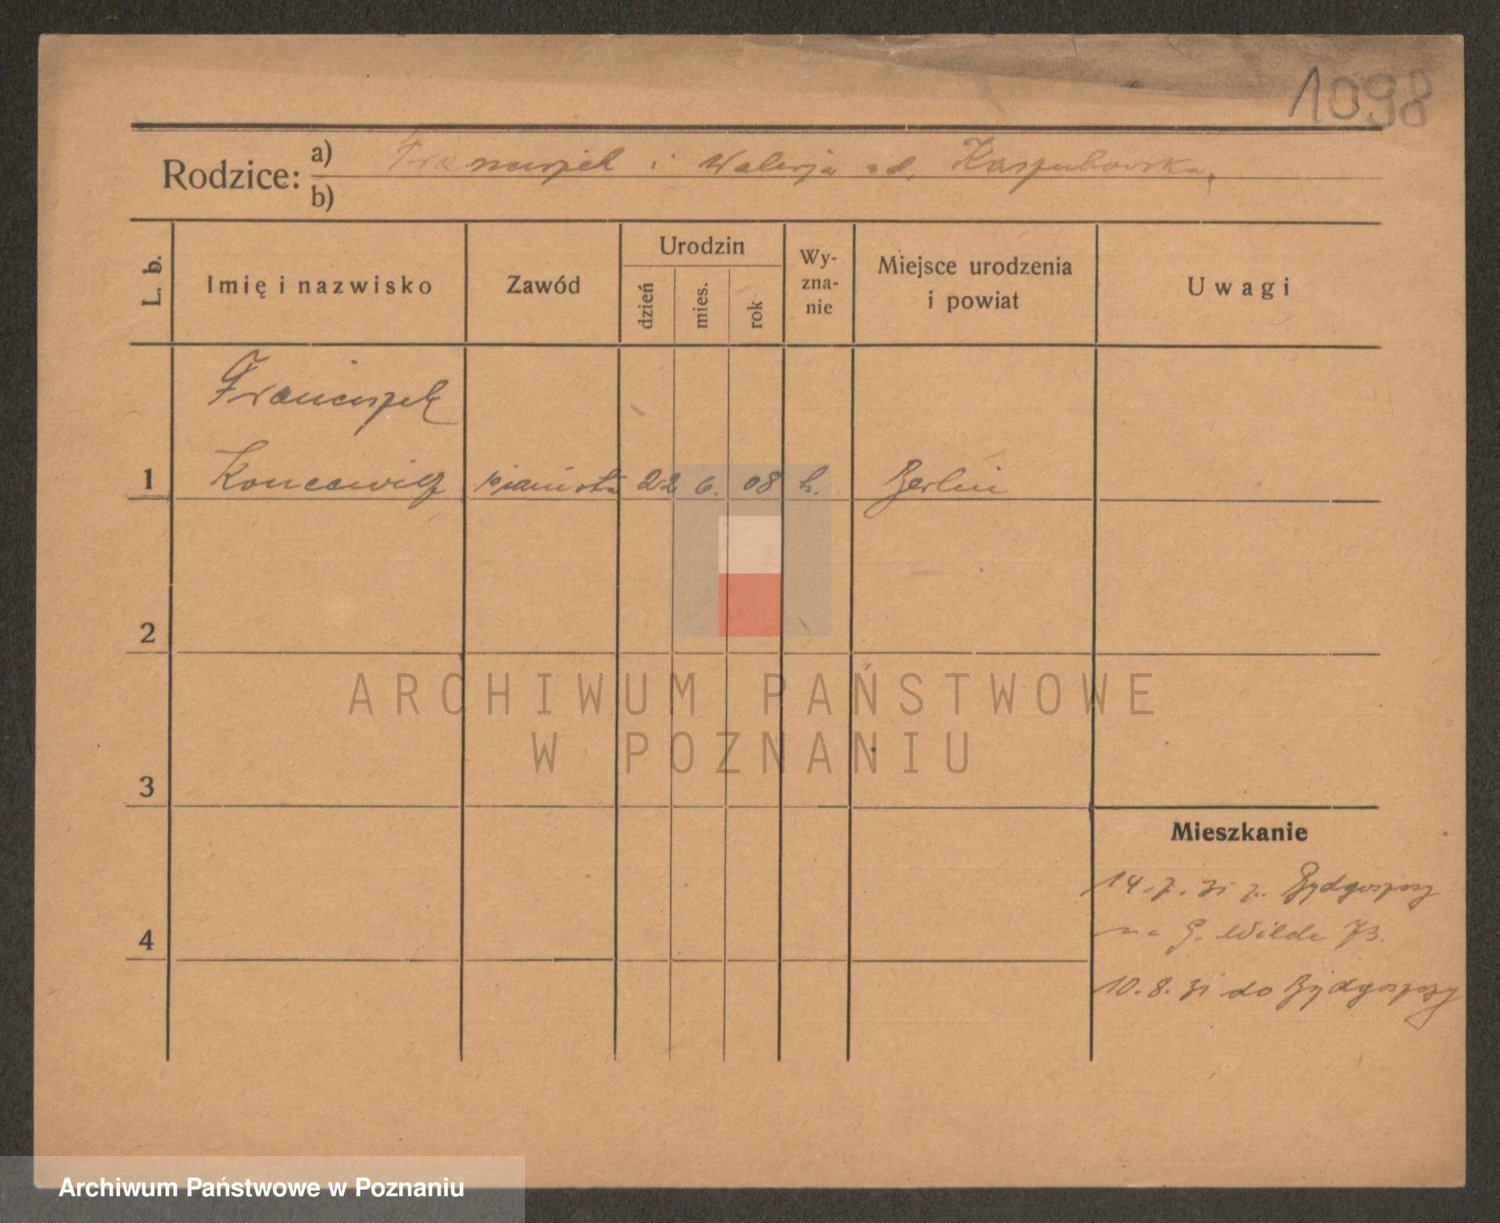 1098
Rodzice:
a) Franciszek i Walerja od. Kaszubowska,
b)
L. b.
Imię i nazwisko
Zawód
Urodzin
dzień
mies.
rok
Wy-
zna-
nie
Miejsce urodzenia
i powiat
Uwagi
Franciszek
1 Koncewicz pianista 22 6. 08 k. Berlin
2
ARCHIWUM PAŃSTWOWE
W POZNANIU
3
Mieszkanie
14.7.31 z Bydgoszczy
na G. Wilda 73.
4
10.8.31 do Bydgoszczy
Archiwum Państwowe w Poznaniu